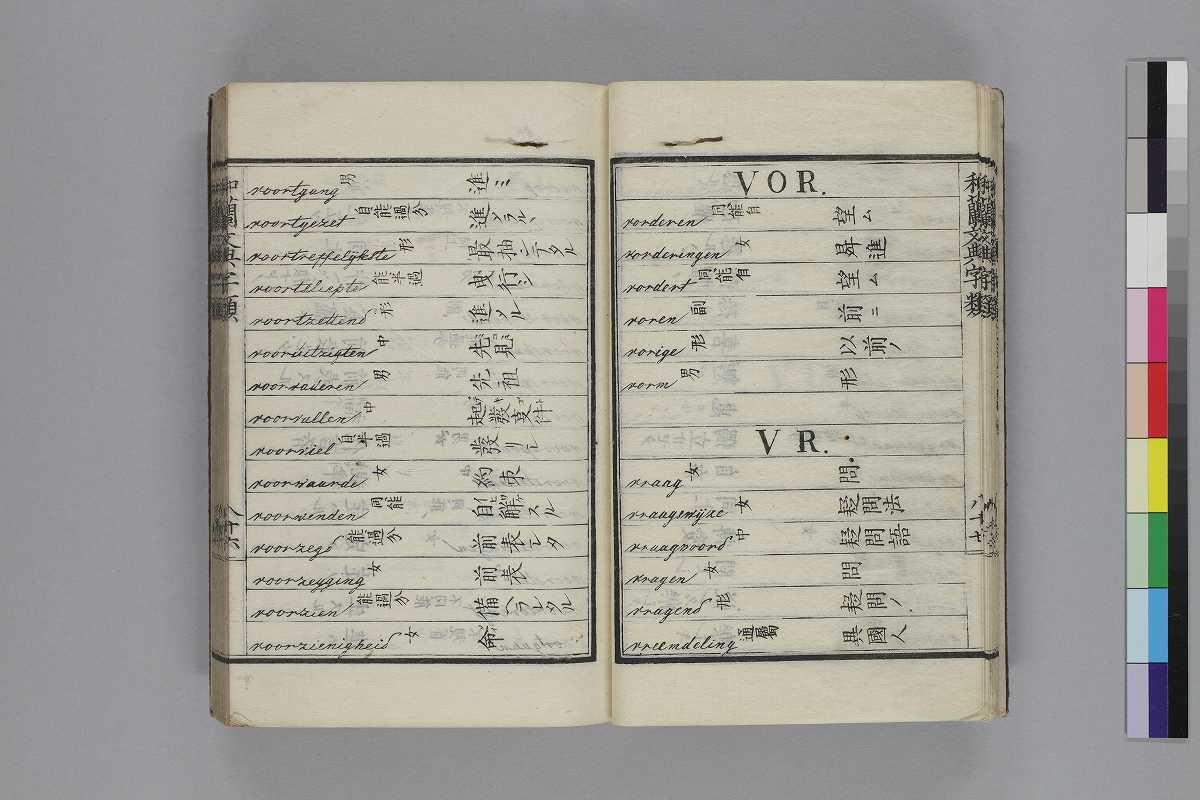 voortgang 男 進ミ
voortgezet 自能過分 進メラル丶
voortreffelijkste 形 最抽ンデタル
voortsleepte 能半過 曳行シ
voortzettend 形 進メル
vooruitzigten 中 先見
voorvaderen 男 先祖
voorvallen 中 起發支件
voorviel 自半過 發リシ
voorwaarde 女 約束
voorwenden 同能 自解スル
voorzegd 能過分 前表シタ
voorzegging 女 前表
voorzien 能過分 備ヘラレタル
voorzienigheid 女 命
VOR.
vorderen 同能自 望ム
vorderingen 女 昇進
vordert 同能有 望ム
voren 副 前ニ
vorige 形 以前ノ
vorm 男 形
VR.
vraag 女 問
vraagswijze 女 疑問法
vraagwoord 中 疑問語
vragen 女 問
vragend 形 疑問ノ
vreemdeling 通屬 異國人
和蘭文典字類